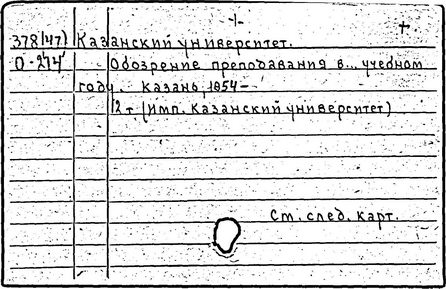 378(47) Казанский университет.
О-274 Обозрение преподавания в... учебном
году. Казань, 1854-
12 т. (Имп. Казанский университет)
См. след. карт.